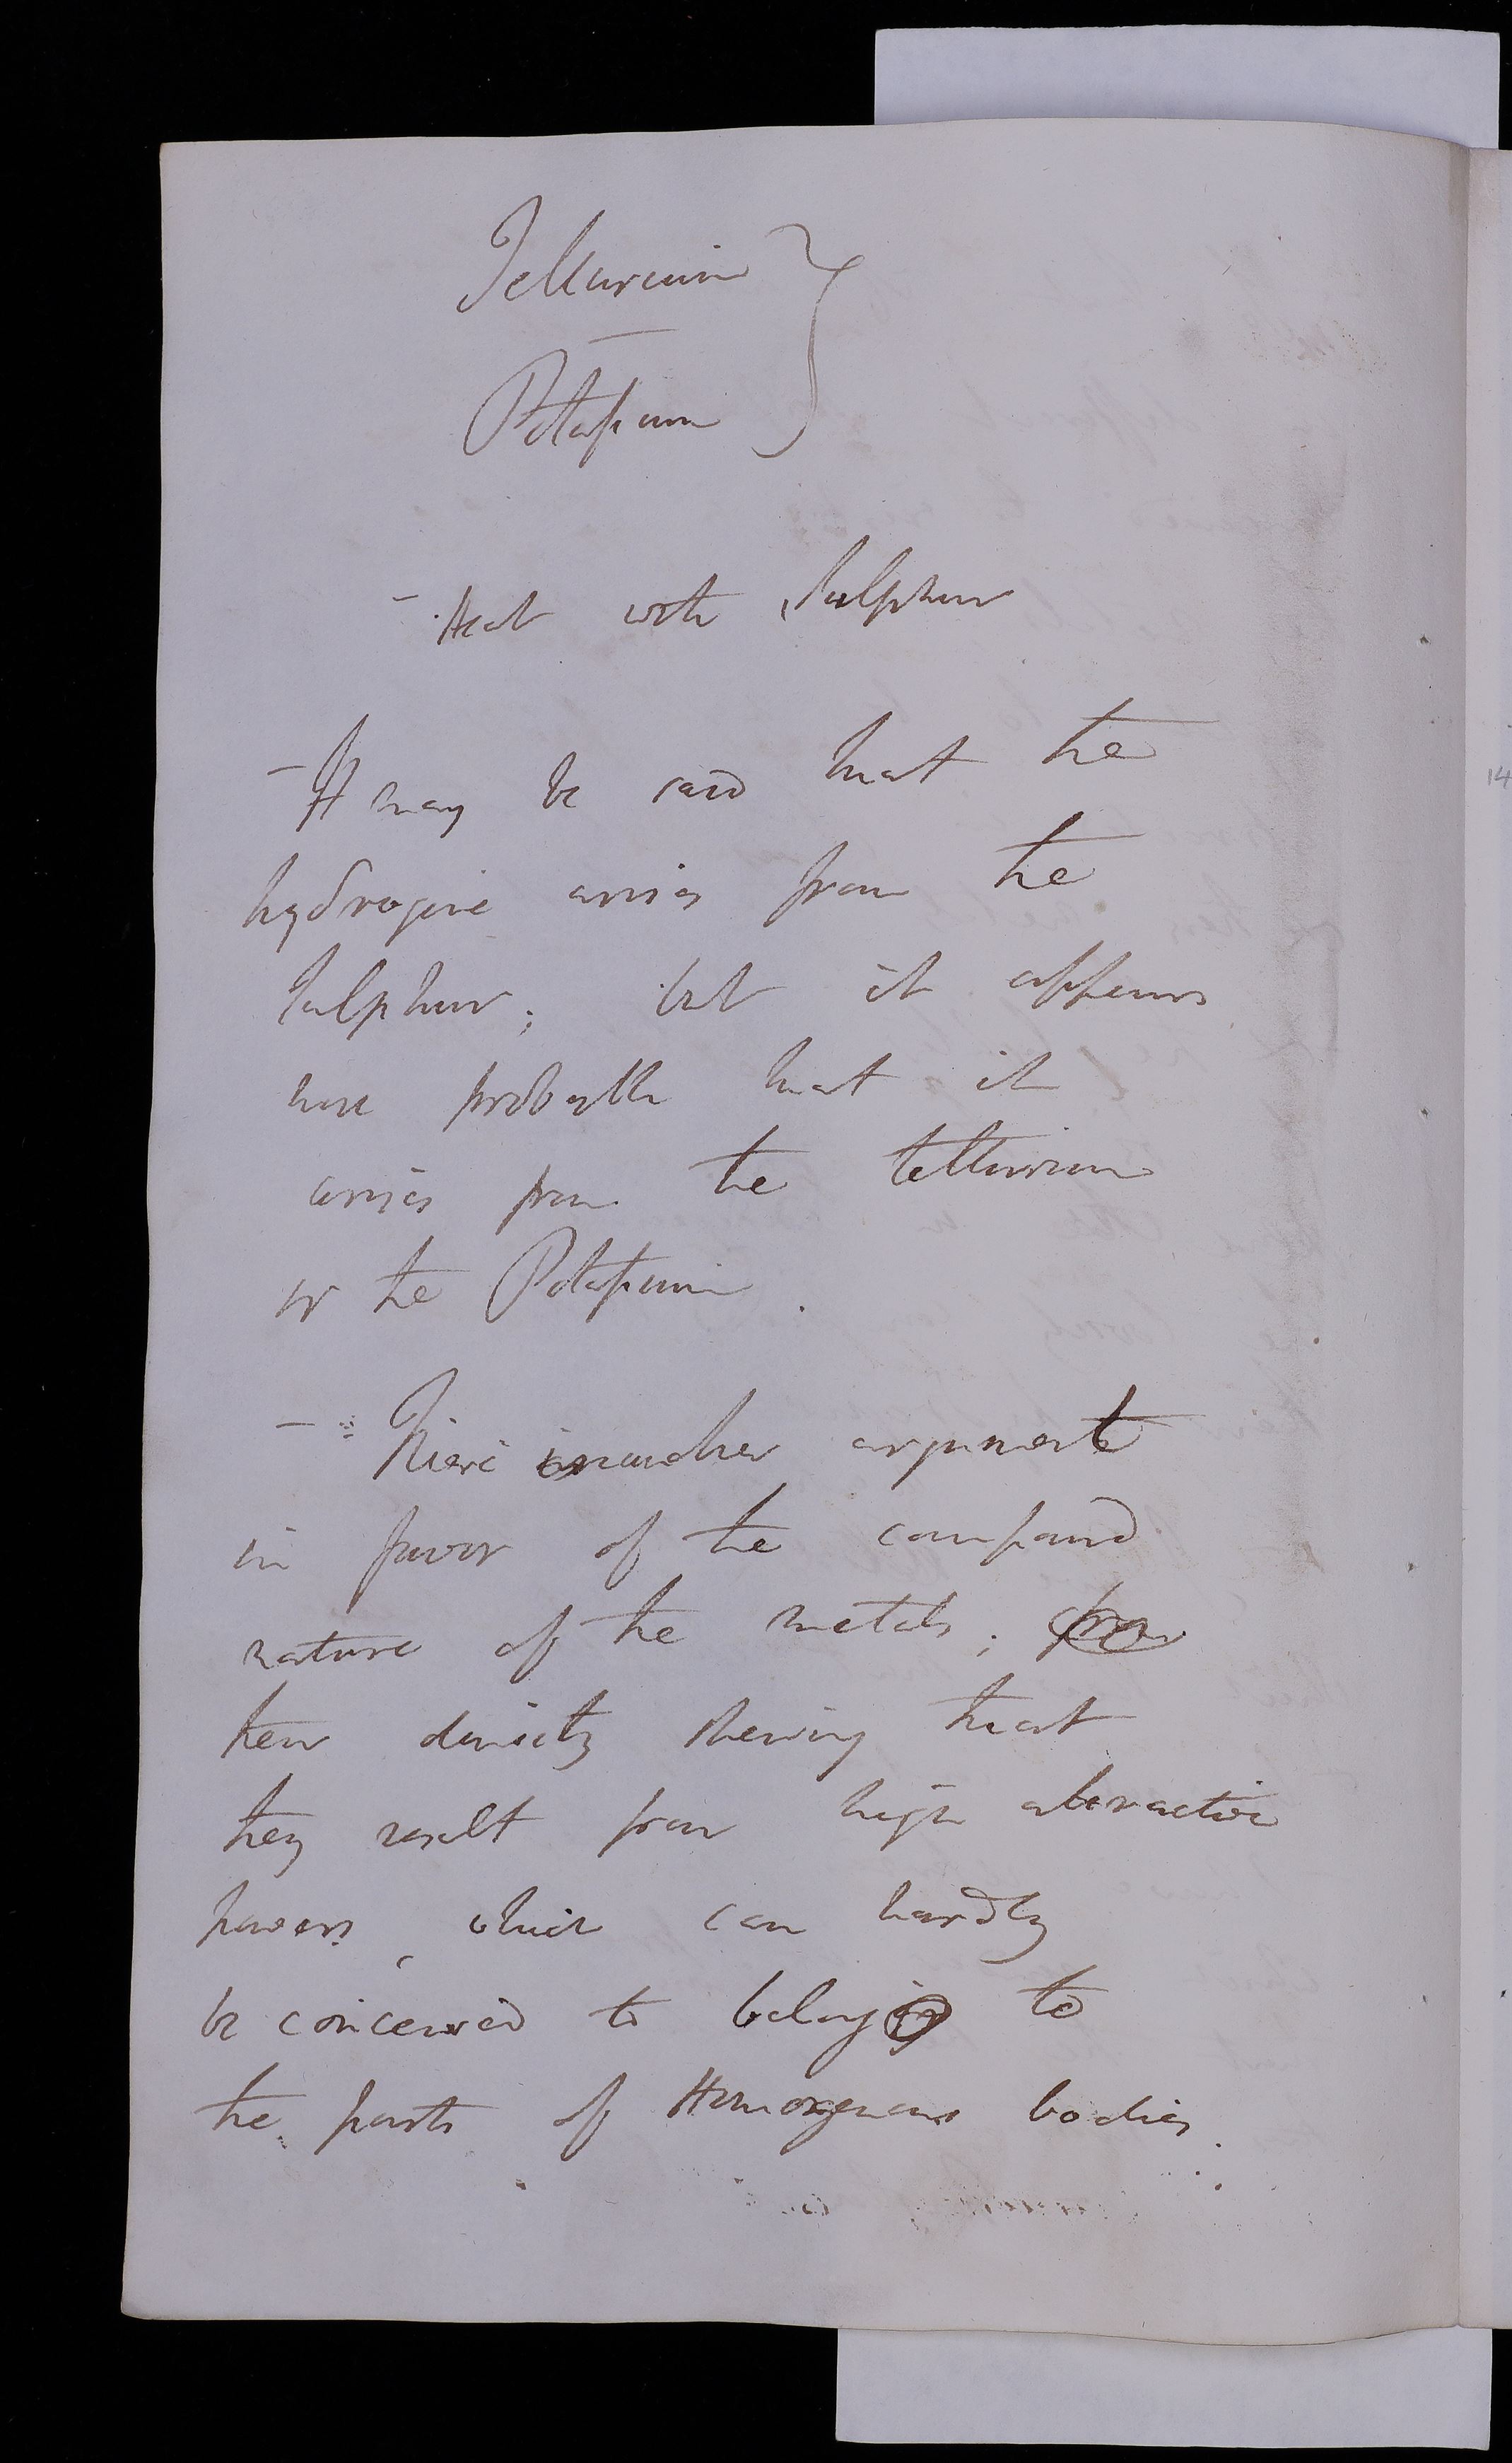 Tellurium }
—
Potassium
- Heat with Sulphur
- It may be said that the
hydrogene arises from the
Sulphur; but it appears
more probable that it
arises from the tellurium
or the Potassium.
- There is another argument
in favor of the compound
nature of the metals; from
their density shewing that
they result from high attractive
powers, which can hardly
be conceived to belong to
the parts of Homogeneous bodies.
14